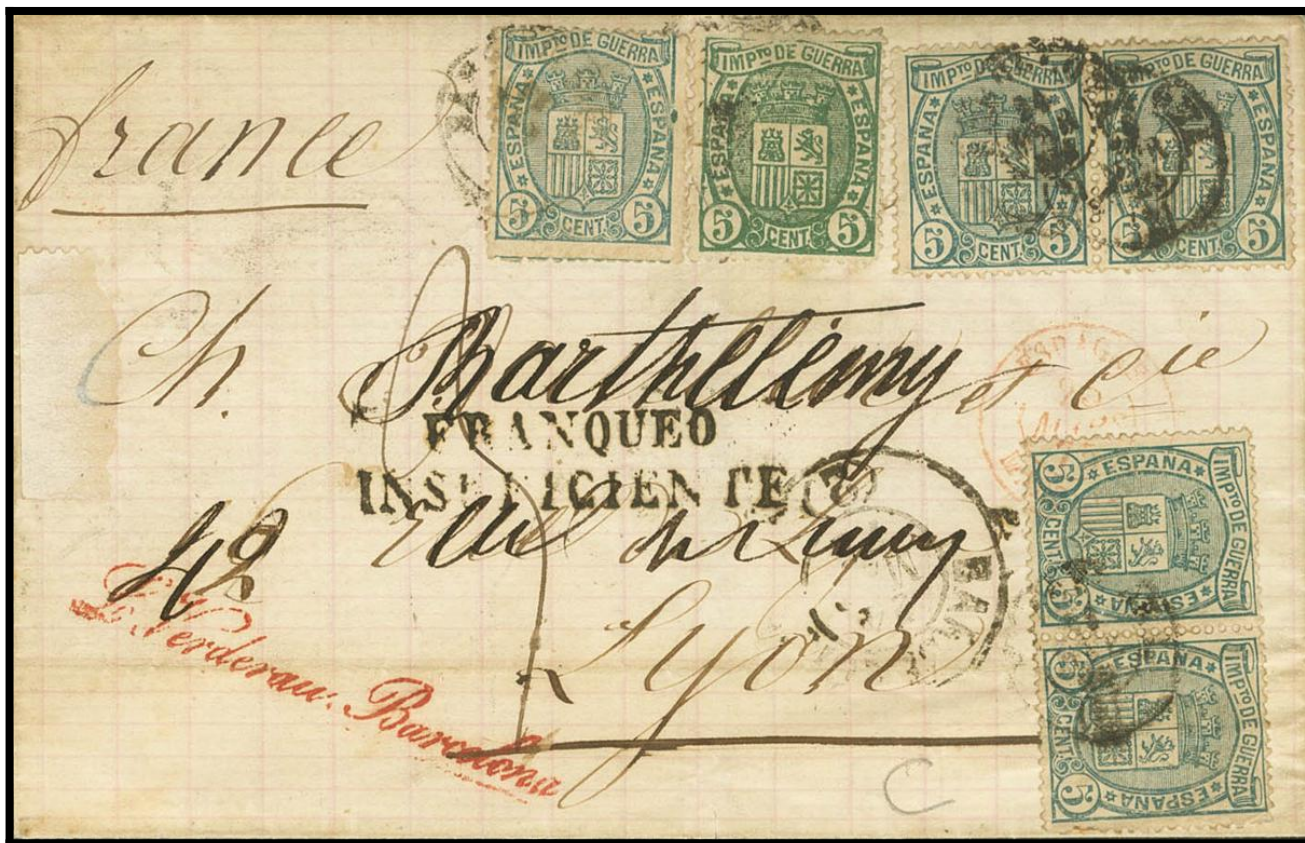 france
IMPTO DE GUERRA
ESPAÑA ESPAÑA
5 CENT. 5
IMPTO DE GUERRA
ESPAÑA ESPAÑA
5 CENT. 5
IMPTO DE GUERRA
ESPAÑA ESPAÑA
5 CENT. 5
IMPTO DE GUERRA
ESPAÑA ESPAÑA
5 CENT. 5
Ch. Barthélémy et Cie
FRANQUEO
INSUFICIENTE
42
Lyon
Verderau. Barcelona
IMPTO DE GUERRA
ESPAÑA ESPAÑA
5 CENT. 5
IMPTO DE GUERRA
ESPAÑA ESPAÑA
5 CENT. 5